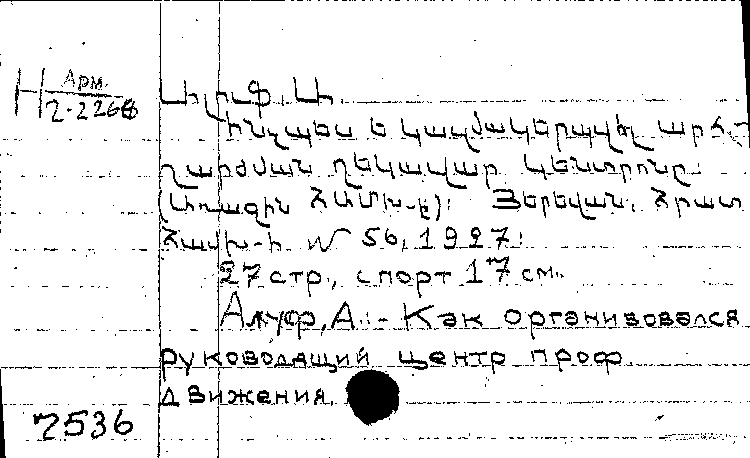 Н Арм.
2-2268
Ալուֆ, Ա.
Ինչպես է կազմակերպվել արհ.
շարժման ղեկավար կենտրոնը:
(Առաջին ՀԱՄԽ-ը): Յերեվան, Հրատ
Համխ-ի № 56, 1927:
27 стр., спорт 17 см.
Алуф, А. - Как организовался
руководящий центр проф.
движения.
7536